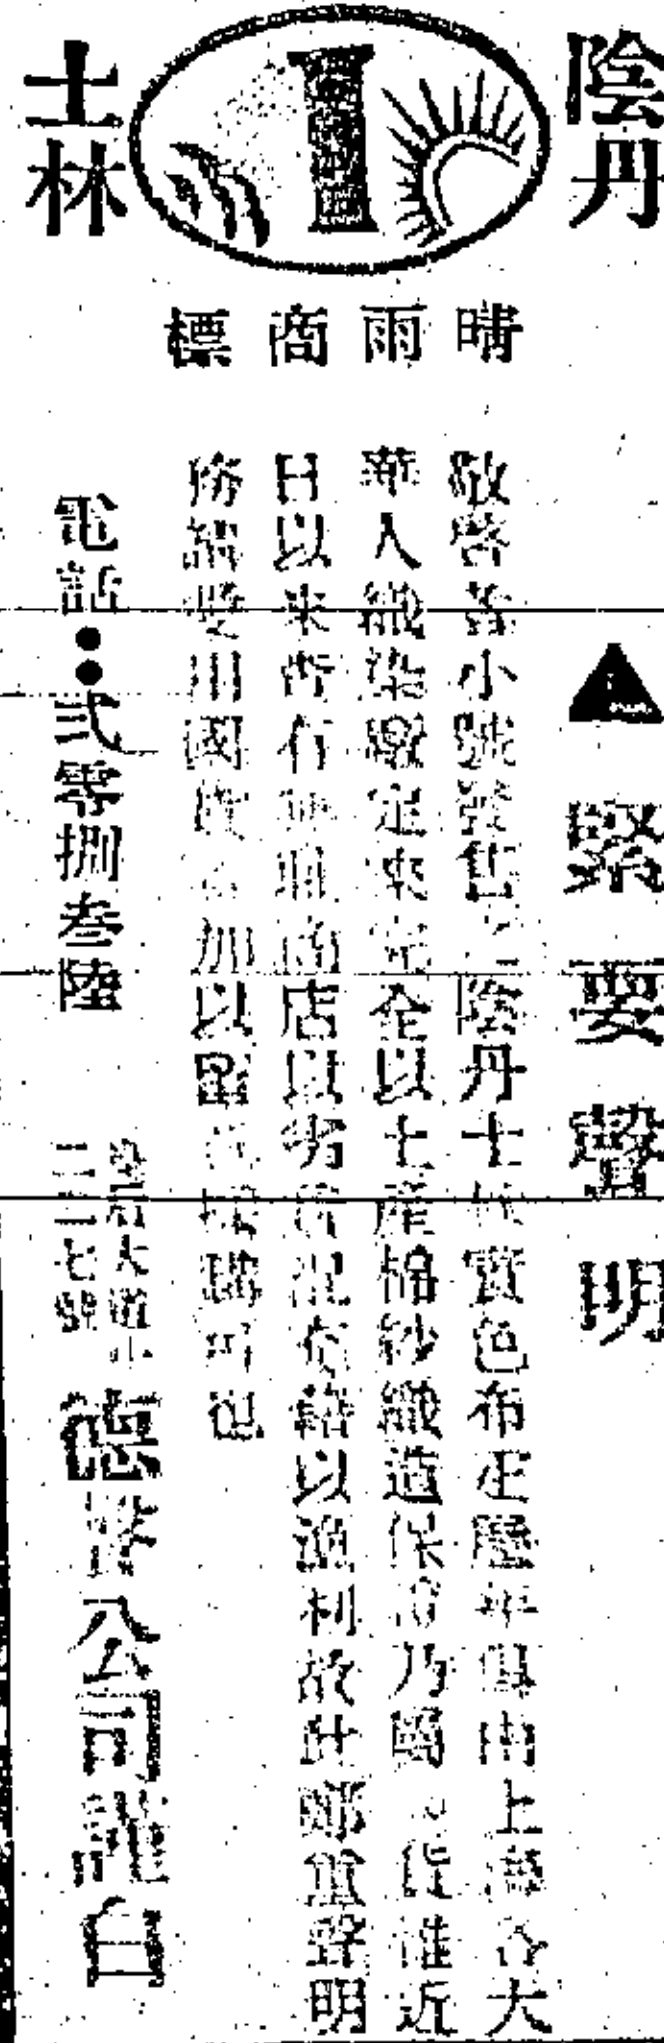 陰丹
士林
晴雨商標
緊要聲明
敬啓者小號發售之陰丹士林實色布疋歷年俱由上海各大
華人織染廠定來完全以土產棉紗織造保證乃國貨惟近
日以來查有無恥商店以劣貨混充藉以漁利故此鄭重聲明
務請愛用國貨加以留可也
電話:弍零捌叁陸
大道中
二二七號
公司謹白